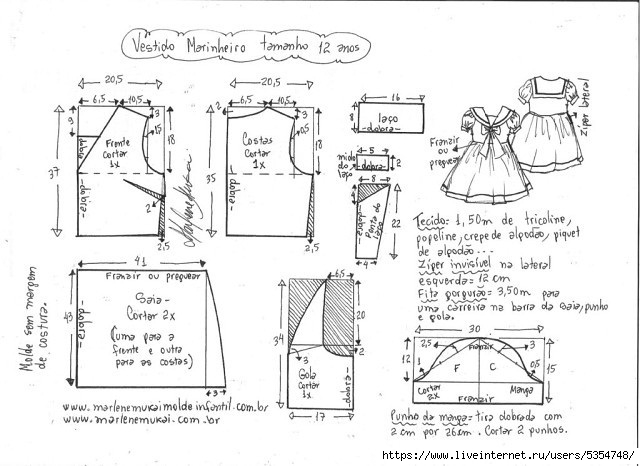 Vestido Marinheiro tamanho 12 anos
20,5
6,5
10,5
3
9
1,5
18
37
Frente
Cortar
1x
dobra
-dobra-
2
2,5
20,5
2
6,5
10,5
3
0,5
18
35
Costas
Cortar
1x
-dobra-
2,5
16
8
laço
-dobra-
5
miolo
do
laço
-dobra-
2
8
-dobra-
Ponta do
laço
22
4
Franzir
ou
preguear
Ziper lateral
Tecido= 1,50m de tricoline,
popeline, crepe de algodão, piquet
de algodão...
Ziper invisível na lateral
esquerda= 12 cm
Fita gorgurão= 3,50m para
uma carreira na barra da saia, punho
e gola.
Molde sem margem
de costura.
41
Franzir ou preguear
43
-dobra-
Saia-
Cortar 2x
(uma para a
frente e outra
para as costas)
3
6,5
20
34
3
2
Gola
Cortar
1x
-dobra-
17
30
12
2,5
Franzir
3
1
F
C
0,5
15
Cortar
2x
Manga
Franzir
Punho da manga= tira dobrada com
2 cm por 26cm. Cortar 2 punhos.
www.marlenemukaimoldeinfantil.com.br
www.marlenemukai.com.br
https://www.liveinternet.ru/users/5354748/